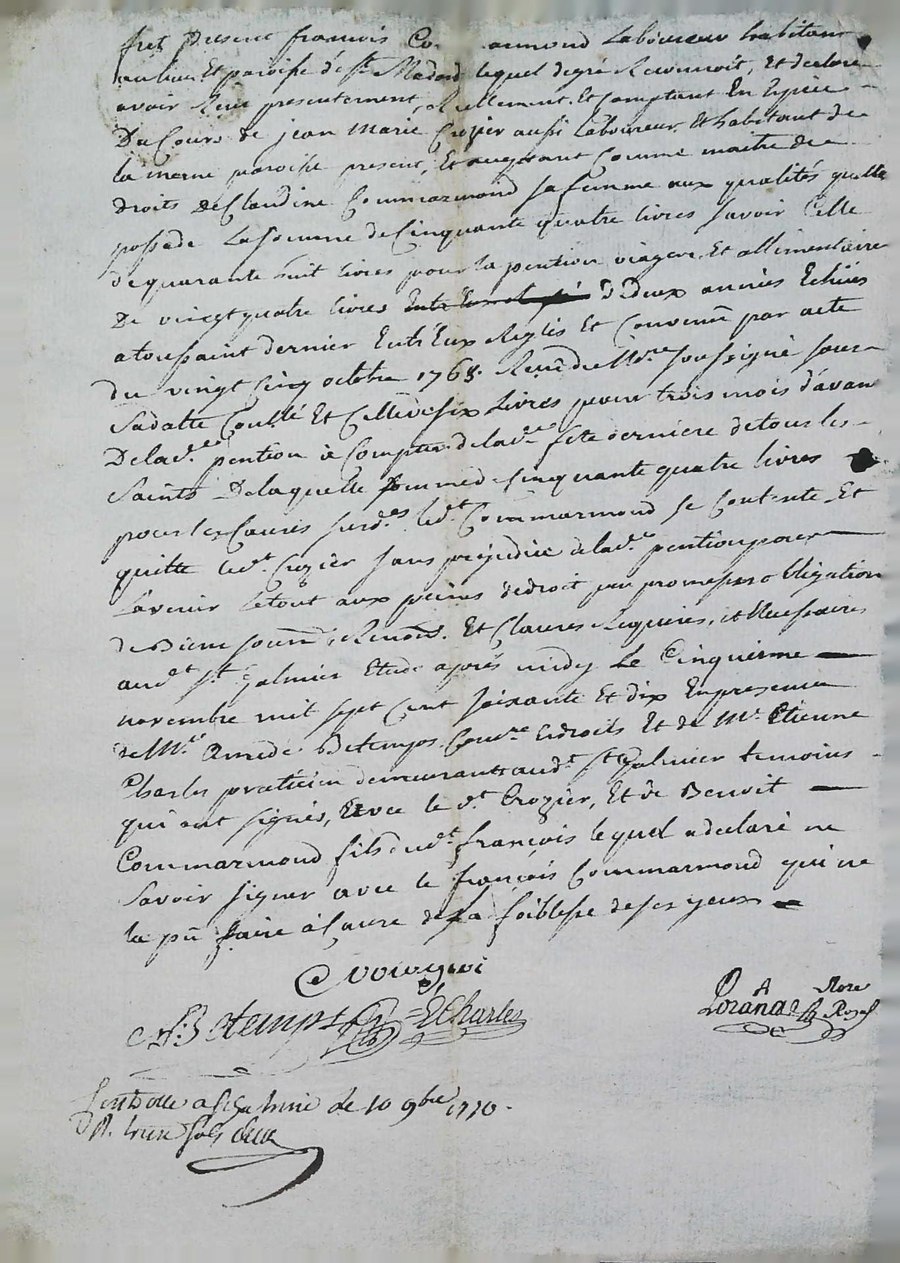 fret present francois Commarmond Laboureur habitant
au lieu Et paroisse de St. Medard lequel degré Reconnoit, Et declare
avoir Reçu presentement Reellement Et Comptant En Espèce
Du Cours de jean Marie Crozier aussi Laboureur Et habitant de
la meme paroisse present, Et acceptant Comme maitre des
droits De Claudine Commarmond sa femme aux qualités quelle
possede La somme de Cinquante quatre livres savoir Celle
de quarante huit livres pour la pention viagere Et allimentaire
De vingt quatre livres de Deux années Echües
a toussaint dernier Entr'Eux Reglés Et Convenue par acte
du vingt Cinq octobre 1768. Reçu du Nre. soussigné sous
Sadatte Conllé Et Celle de six Livres pour trois mois d'avan
De lad.e pention à Compter de lad.e fete derniere de tous les
Saints De laquelle somme de Cinquante quatre livres
pour les Causes susd.es led.t Commarmond se Contente Et
quitte led.t Crozier sans prejudice de lad.e pention pour
l'avenir Le tout aux peines de droit par promesses obligation
de Biens soum. Renon. Et Clauses Requises, et Necessaires
aud.t St. Galmier Etude après midy Le Cinquieme
novembre mil sept Cent soixante Et dix En presence
de Mr. Amedé Betemps Es droits Et de Mr. Etienne
Charles praticien demeurants aud.t St. Galmier temoins
qui ont signés, Avec le d.t Crozier, Et de Benoit
Commarmond fils dud.t françois lequel a declaré ne
Savoir signer avec le françois Commarmond qui ne
la pû faire à Cause de sa foiblesse de ses yeux
Betemps E Charles
a St. Galmier le 10 9bre 1770.